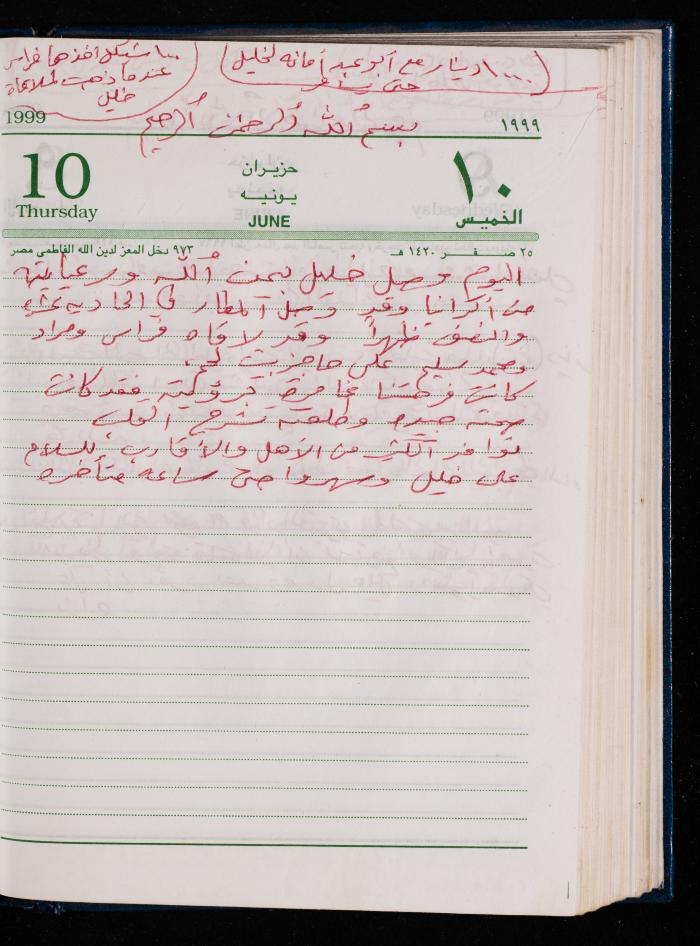 ١٠٠٠ دينار مع أبو عبد أمانه لخليل
حتى
شيكل أخذها فراس
عندما ذهبت لملاقاة
خليل
1999
١٩٩٩
بسم الله الرحمن الرحيم
10
Thursday
حزيران
يونيه
JUNE
١٠
الخميس
٢٥ صفر ١٤٢٠ هـ
٩٧٣ دخل المعز لدين الله الفاطمى مصر
اليوم وصل خليل بمن الله ورعايته
من أكرانيا وقد وصل المطار في الحاديه عشره
والنصف ظهراً وقد لاقاه فراس ومراد
ومحمد سليم على حاجز بيت لحم.
كانت فرحتنا غامرة برؤيته فقد كانت
صحته جيده وطلعته تشرح القلب
توافد الكثير من الأهل والأقارب للسلام
على خليل وسهروا حتى ساعه متأخره